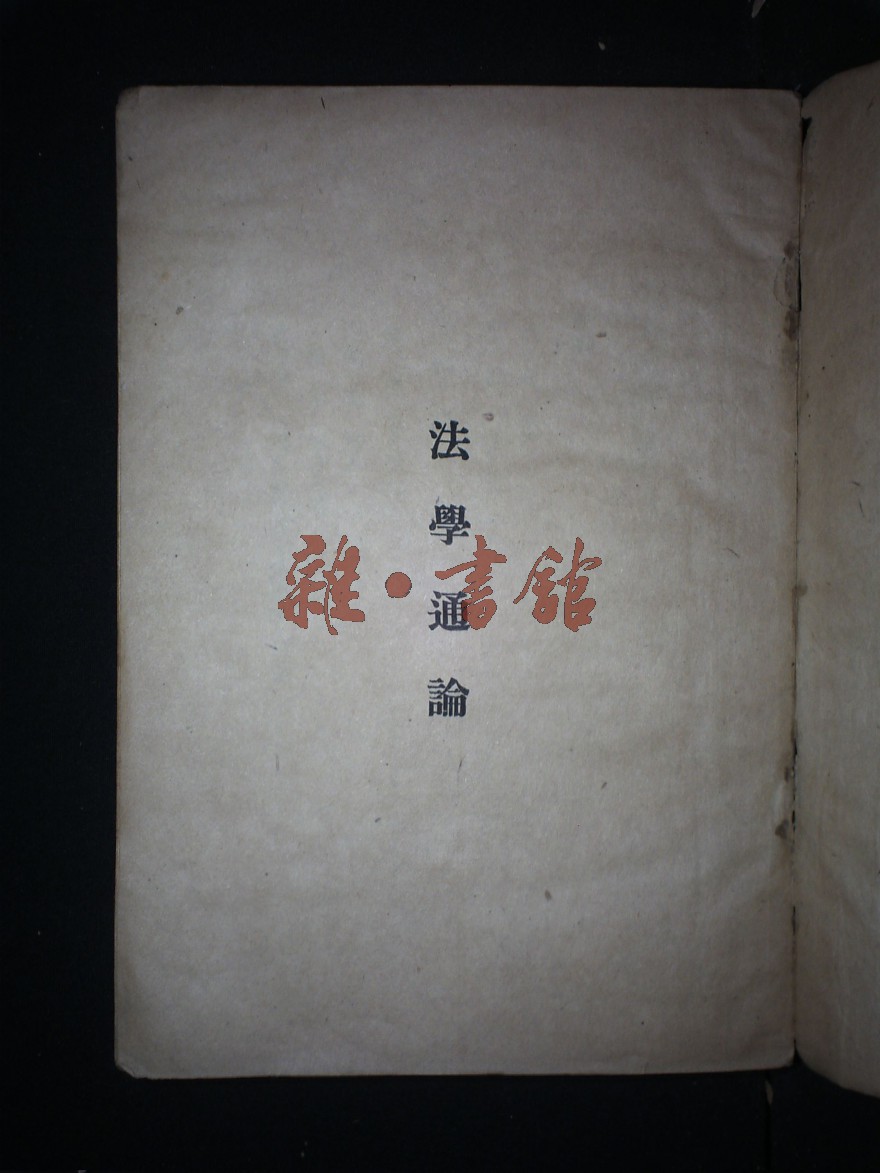 法學通論
雜·書館